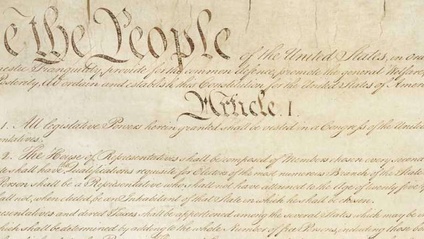 e the People of the United States, in Ord
nestic Tranquility, provide for the common defence, promote the general Welfare,
Posterity, do ordain and establish this Constitution for the United States of Amer
Article. I.
1. All legislative Powers herein granted shall be vested in a Congress of the United
entatives.
2. The House of Representatives shall be composed of Members chosen every second
shall have Qualifications requisite for Electors of the most numerous Branch of the State
Person shall be a Representative who shall not have attained to the Age of twenty five
shall not, when elected, be an Inhabitant of that State in which he shall be chosen.
esentatives and direct Taxes shall be apportioned among the several States which may be
which shall be determined by adding to the whole Number of free Persons, including those